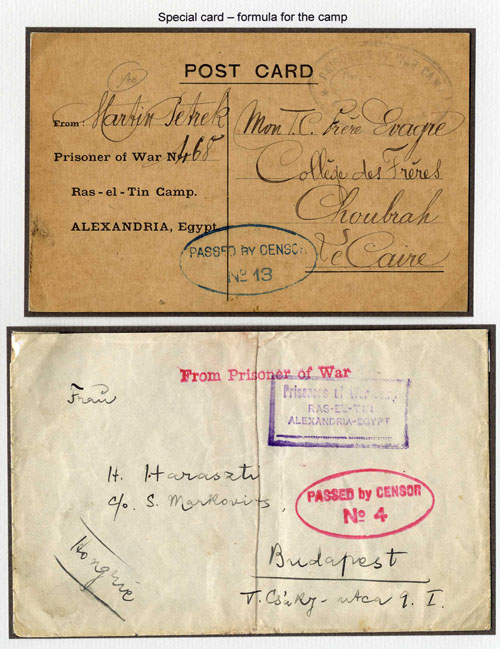 Special card – formula for the camp
POST CARD
From: Martin Petrek
Prisoner of War No 468
Ras-el-Tin Camp.
ALEXANDRIA, Egypt.
Mon T. C. Frère Evagre
Collège des Frères
Choubrah
Le Caire
PASSED BY CENSOR
No 13
From Prisoner of War
Prisoners of War Camp
RAS-EL-TIN
ALEXANDRIA-EGYPT
Frau
H. Haraszti
c/o. S. Markovits,
PASSED by CENSOR
No 4
Hongrie
Budapest
V. Csáky-utca 9. I.